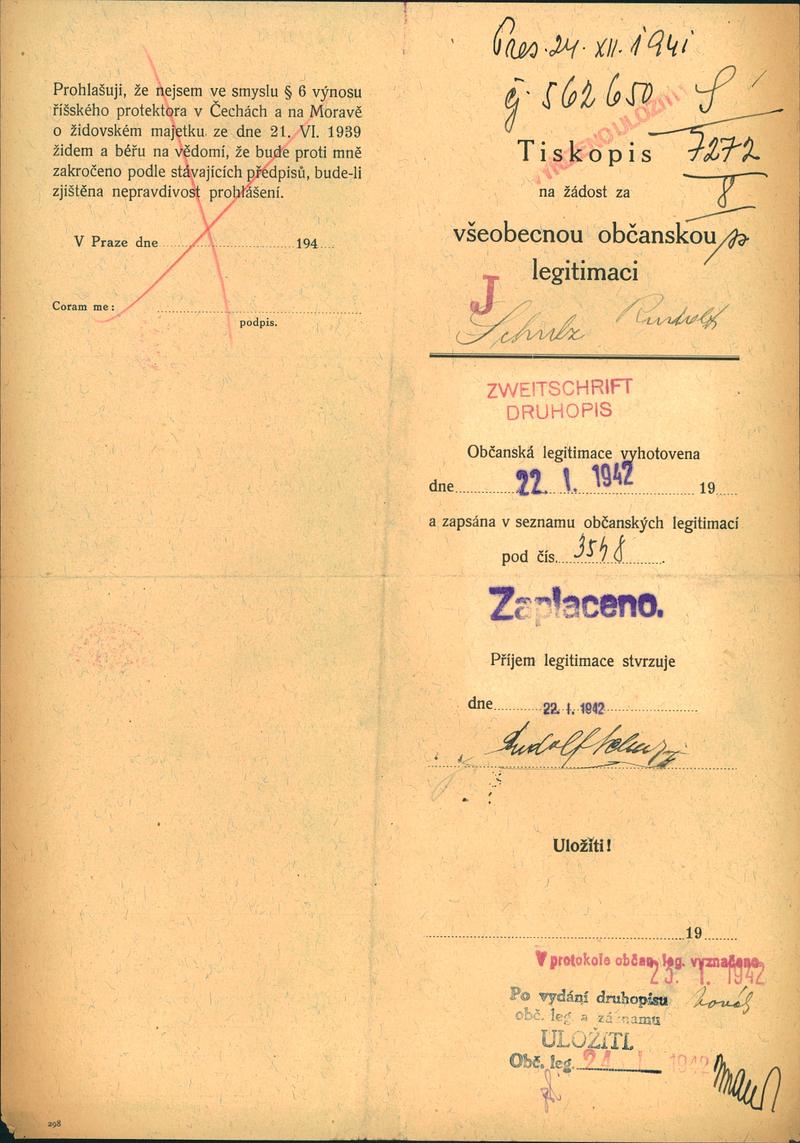 Prohlašuji, že nejsem ve smyslu § 6 výnosu
říšského protektora v Čechách a na Moravě
o židovském majetku ze dne 21. VI. 1939
židem a béřu na vědomí, že bude proti mně
zakročeno podle stávajících předpisů, bude-li
zjištěna nepravdivost prohlášení.
V Praze dne 194
Coram me:
podpis.
298
Pres. 24. XII. 1941
čj. 562650
S
VYŘÍZENO ULOŽITI
Tiskopis 7272
na žádost za 8
všeobecnou občanskou
legitimaci
J
Schulz Rudolf
ZWEITSCHRIFT
DRUHOPIS
Občanská legitimace vyhotovena
dne 22. I. 1942 19
a zapsána v seznamu občanských legitimací
pod čís. 3548
Zaplaceno.
Příjem legitimace stvrzuje
dne 22. I. 1942
Rudolf Schulz
Uložiti!
19
V protokole občan. leg. vyznačeno
23. I. 1942
Po vydání druhopisu Novák
obč. leg a záznamu
ULOŽITI.
Obč. leg. 24. I. 1942